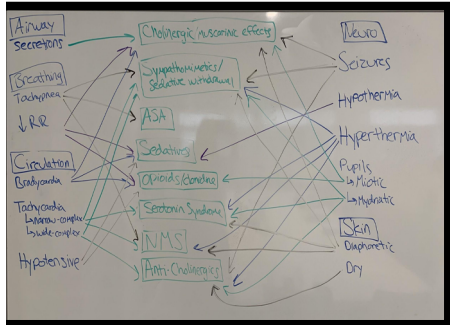 Airway
secretions
Breathing
Tachypnea
↓RR
Circulation
Bradycardia
Tachycardia
↳narrow-complex
↳wide-complex
Hypotensive
Cholinergic muscarinic effects
Sympathomimetics/
sedative withdrawal
ASA
Sedatives
Opioids/clonidine
Serotonin Syndrome
NMS
Anti-Cholinergics
Neuro
Seizures
Hypothermia
Hyperthermia
Pupils
↳Miotic
↳Mydriatic
Skin
Diaphoretic
Dry